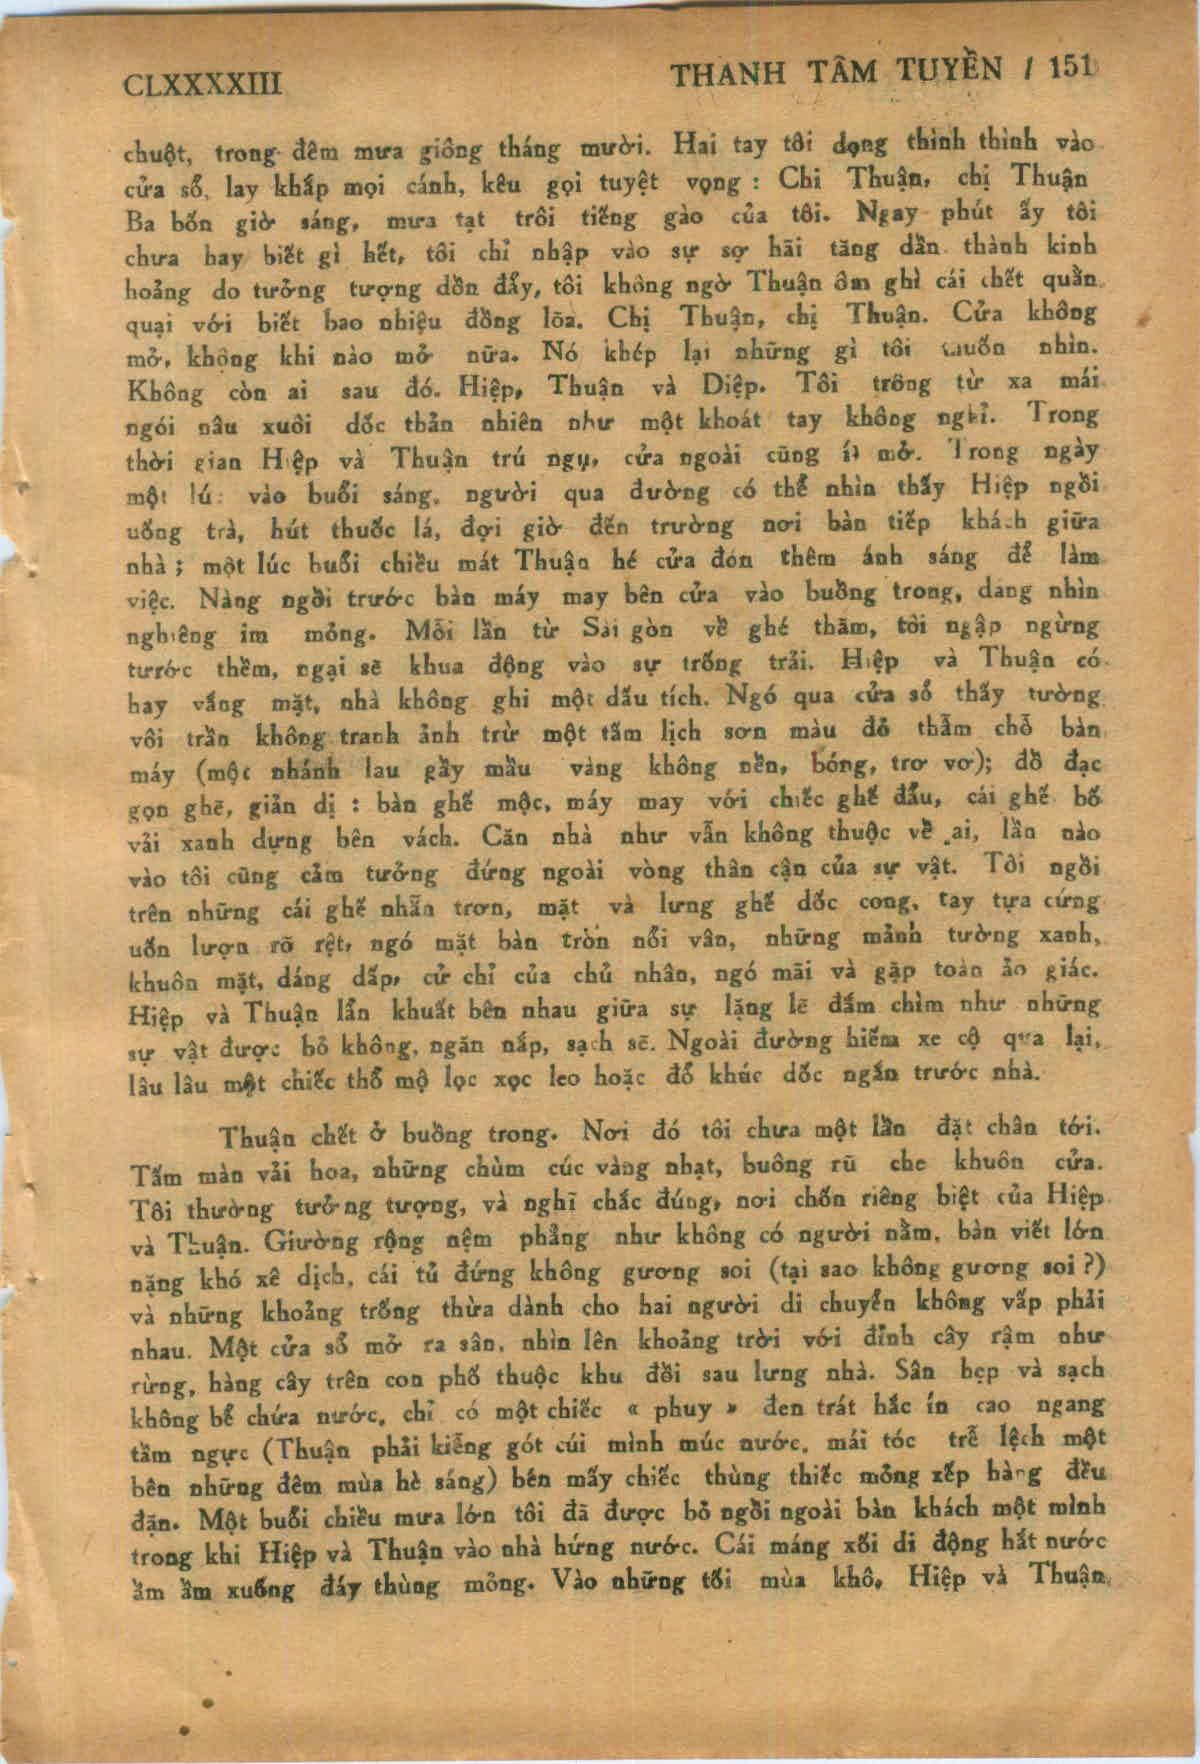 CLXXXXIII
THANH TÂM TUYỀN / 151
chuột, trong đêm mưa giông tháng mười. Hai tay tôi dọng thình thình vào
cửa sổ, lay khắp mọi cánh, kêu gọi tuyệt vọng : Chi Thuận, chị Thuận
Ba bốn giờ sáng, mưa tạt trôi tiếng gào của tôi. Ngay phút ấy tôi
chưa hay biết gì hết, tôi chỉ nhập vào sự sợ hãi tăng dần thành kinh
hoảng do tưởng tượng dồn đẩy, tôi không ngờ Thuận ôm ghì cái chết quằn
quại với biết bao nhiệu đồng lõa. Chị Thuận, chị Thuận. Cửa không
mở, không khi nào mở nữa. Nó khép lại những gì tôi muốn nhìn.
Không còn ai sau đó. Hiệp, Thuận và Diệp. Tôi trông từ xa mái
ngói nâu xuôi dốc thản nhiên như một khoát tay không nghỉ. Trong
thời gian Hiệp và Thuận trú ngụ, cửa ngoài cũng ít mở. Trong ngày
một lú: vào buổi sáng, người qua đường có thể nhìn thấy Hiệp ngồi
uống trà, hút thuốc lá, đợi giờ đến trường nơi bàn tiếp khách giữa
nhà ; một lúc buổi chiều mát Thuận hé cửa đón thêm ánh sáng để làm
việc. Nàng ngồi trước bàn máy may bên cửa vào buồng trong, dáng nhìn
nghiêng im mỏng. Mỗi lần từ Sài gòn về ghé thăm, tôi ngập ngừng
trước thềm, ngại sẽ khua động vào sự trống trải. Hiệp và Thuận có
hay vắng mặt, nhà không ghi một dấu tích. Ngó qua cửa sổ thấy tường
vôi trần không tranh ảnh trừ một tấm lịch sơn màu đỏ thẫm chỗ bàn
máy (một nhánh lau gầy mầu vàng không nền, bóng, trơ vơ); đồ đạc
gọn ghẽ, giản dị : bàn ghế mộc, máy may với chiếc ghế đẩu, cái ghế bố
vải xanh dựng bên vách. Căn nhà như vẫn không thuộc về ai, lần nào
vào tôi cũng cảm tưởng đứng ngoài vòng thân cận của sự vật. Tôi ngồi
trên những cái ghế nhẵn trơn, mặt và lưng ghế dốc cong, tay tựa cứng
uốn lượn rõ rệt, ngó mặt bàn tròn nổi vân, những mảnh tường xanh,
khuôn mặt, dáng dấp, cử chỉ của chủ nhân, ngó mãi và gặp toàn ảo giác.
Hiệp và Thuận lẩn khuất bên nhau giữa sự lặng lẽ đắm chìm như những
sự vật được bỏ không, ngăn nắp, sạch sẽ. Ngoài đường hiếm xe cộ qua lại,
lâu lâu một chiếc thổ mộ lọc xọc leo hoặc đổ khúc dốc ngắn trước nhà.
Thuận chết ở buồng trong. Nơi đó tôi chưa một lần đặt chân tới.
Tấm màn vải hoa, những chùm cúc vàng nhạt, buông rũ che khuôn cửa.
Tôi thường tưởng tượng, và nghĩ chắc đúng, nơi chốn riêng biệt của Hiệp
và Thuận. Giường rộng nệm phẳng như không có người nằm, bàn viết lớn
nặng khó xê dịch, cái tủ đứng không gương soi (tại sao không gương soi ?)
và những khoảng trống thừa dành cho hai người di chuyển không vấp phải
nhau. Một cửa sổ mở ra sân, nhìn lên khoảng trời với đỉnh cây rậm như
rừng, hàng cây trên con phố thuộc khu đồi sau lưng nhà. Sân hẹp và sạch
không bể chứa nước, chỉ có một chiếc « phuy » đen trát hắc ín cao ngang
tầm ngực (Thuận phải kiễng gót cúi mình múc nước, mái tóc trễ lệch một
bên những đêm mùa hè sáng) bên mấy chiếc thùng thiếc mỏng xếp hàng đều
đặn. Một buổi chiều mưa lớn tôi đã được bỏ ngồi ngoài bàn khách một mình
trong khi Hiệp và Thuận vào nhà hứng nước. Cái máng xối di động hắt nước
ầm ầm xuống đáy thùng mỏng. Vào những tối mùa khô, Hiệp và Thuận